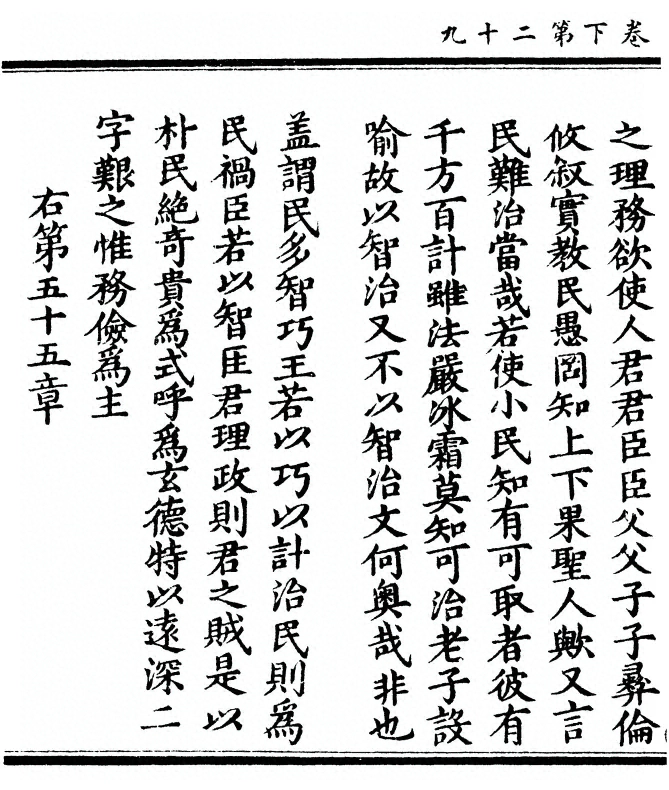 卷下第二十九
之理務欲使人君君臣臣父父子子彛倫
攸叙實教民愚罔知上下果聖人歟又言
民難治當哉若使小民知有可取者彼有
千方百計雖法嚴冰霜莫知可治老子設
喻故以智治又不以智治文何奥哉非也
盖謂民多智巧王若以巧以計治民則爲
民禍臣若以智匡君理政則君之賊是以
朴民絶奇貴爲式呼爲玄德特以遠深二
字艱之惟務儉爲主
右第五十五章